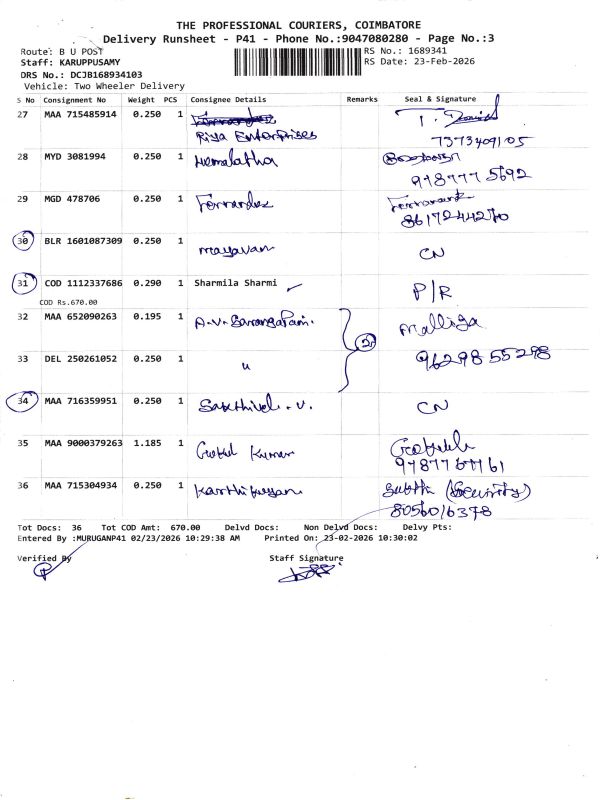 THE PROFESSIONAL COURIERS, COIMBATORE
Delivery Runsheet - P41 - Phone No.:9047080280 - Page No.:3
Route: B U POST
RS No.: 1689341
Staff: KARUPPUSAMY
RS Date: 23-Feb-2026
DRS No.: DCJB168934103
Vehicle: Two Wheeler Delivery
S No Consignment No Weight PCS Consignee Details Remarks Seal & Signature
27 MAA 715485914 0.250 1
Riya Enterprises
7373409105
28 MYD 3081994 0.250 1 Hemalatha
978777 5692
29 MGD 478706 0.250 1 Fernandez
8617244270
30 BLR 1601087309 0.250 1 mayavan CN
31 COD 1112337686 0.290 1 Sharmila Sharmi P/R
COD Rs.670.00
32 MAA 652090263 0.195 1 A.V. Sarangapani. Malliga
2
33 DEL 250261052 0.250 1 " 96298 55298
34 MAA 716359951 0.250 1 Sakthivel. V. CN
35 MAA 9000379263 1.185 1 Gokul Kumar
36 MAA 715304934 0.250 1 Karthikeyan (Security)
8056016378
Tot Docs: 36 Tot COD Amt: 670.00 Delvd Docs: Non Delvd Docs: Delvy Pts:
Entered By :MURUGANP41 02/23/2026 10:29:38 AM Printed On: 23-02-2026 10:30:02
Verified By Staff Signature